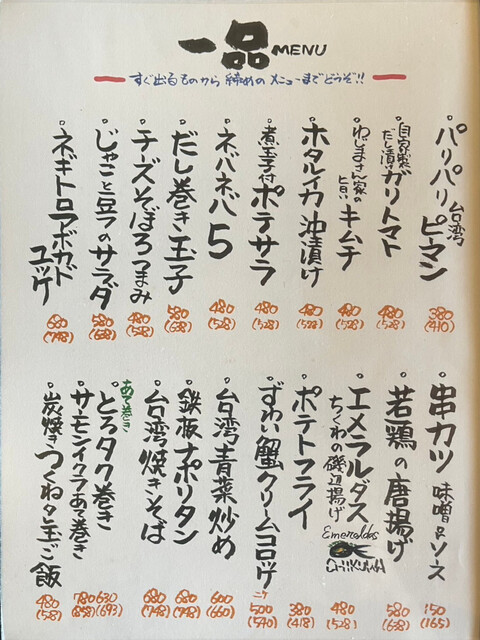 一品 MENU
すぐ出るものから 締めの メニューまでどうぞ!!
パリパリ 台湾 ピーマン
380
(410)
自家製 だし漬け ガリトマト
480
(528)
わじまさん家の 旨い キムチ
480
(528)
ホタルイカ 沖漬け
480
(528)
煮玉子付 ポテサラ
480
(528)
ネバネバ 5
480
(528)
だし巻き玉子
580
(638)
チーズそぼろつまみ
480
(528)
じゃこと豆フのサラダ
580
(638)
ネギトロアボカド ユッケ
680
(748)
串カツ 味噌 or ソース
150
(165)
若鶏の唐揚げ
580
(638)
エメラルダス
ちくわの磯辺揚げ
Emeraldas
CHIKUWA
480
(528)
ポテトフライ
380
(418)
ずわい蟹クリームコロッケ
二ケ
500
(540)
台湾青菜炒め
600
(660)
鉄板ナポリタン
680
(748)
台湾焼きそば
680
(748)
あて巻き
とろタク巻き
630
(693)
サーモンイクラあて巻き
780
(858)
炭焼きつくねタレ玉ご飯
480
(528)